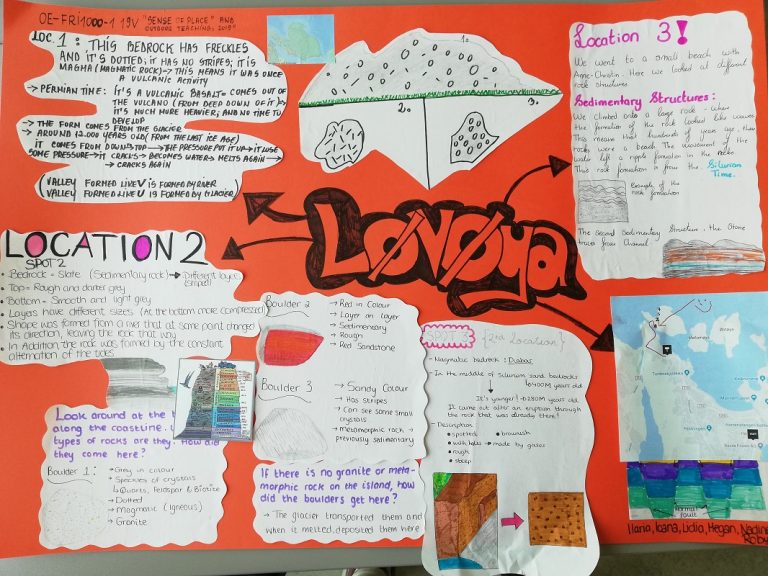 OE-FRI1000-1 19V "SENSE OF PLACE" AND
OUTDOOR TEACHING, 2019"
LOC. 1: THIS BEDROCK HAS FRECKLES
AND IT'S DOTTED; IT HAS NO STRIPES; IT IS
MAGMA (MAGMATIC ROCK) → THIS MEANS IT WAS ONCE
A VULCANIC ACTIVITY
→ PERMIAN TIME: IT'S A VULCANIC BASALT = COMES OUT
OF THE VULCANO (FROM DEEP DOWN OF IT)
IT'S MUCH MORE HEAVIER; AND NO TIME TO
DEVELOP
→ THE FORM COMES FROM THE GLACIER
→ AROUND 12.000 YEARS OLD (FROM THE LAST ICE AGE)
IT COMES FROM DOWN → TOP → THE PRESSURE PUT IT UP → IT LOSE
SOME PRESSURE → IT CRACKS → BECOMES WATER → MELTS AGAIN →
→ CRACKS AGAIN
(VALLEY FORMED LIKE V IS FORMED BY RIVER
(VALLEY FORMED LIKE U IS FORMED BY GLACIER)
1.
2.
3.
Location 3!
We went to a small beach with
Here we looked at different
rock structures.
Sedimentary Structures:
We climbed onto a large rock, where
the formation of the rock looked like waves.
This means that hundreds of years ago, the
rocks were a beach. The movement of the
water left a ripple formation in the rocks.
This rock formation is from the Silurian
Time.
Example of the
rock formation
The Second Sedimentary Structure, the Stone
traces from Channel
Løvøya
LOCATION 2
SPOT 2
• Bedrock = Slate (Sedimentary rock) → Different layers
(striped)
• Top = Rough and darker grey
• Bottom = Smooth and light grey
• Layers have different sizes (At the bottom more compressed)
• Shape was formed from a river that at some point changed
its direction, leaving the rock that way
• In Addition, the rock was formed by the constant
alternation of the tides
Look around at the
along the coastline.
types of rocks are they? How did
they come here?
Boulder 1:
→ Grey in colour
→ Speckles of crystals
↳ Quartz, Felsspar & Biotite
→ Dotted
→ Magmatic (igneous)
→ Granite
Boulder 2
→ Red in Colour
→ Layer on layer
→ Sedimentary
→ Rough
→ Red Sandstone
Boulder 3
→ Sandy Colour
→ Has stripes
→ Can see some small
crystals
→ metamorphic rock →
previously sedimentary
If there is no granite or meta-
morphic rock on the island, how
did the boulders get here?
→ The glacier transported them and
when it melted, deposited them here
{2nd Location}
- Magmatic bedrock: Diabas
- In the middle of Silurian sand bedrocks
400MM years old
It's younger! → 280M years old
It came out after an eruption through
the rock that was already there!
- Description
• spotted
• brownish
• with holes → made by gases
• rough
• steep
normal
fault
Ilaria, Ioana, Lidia, Megan, Nadine
Roby